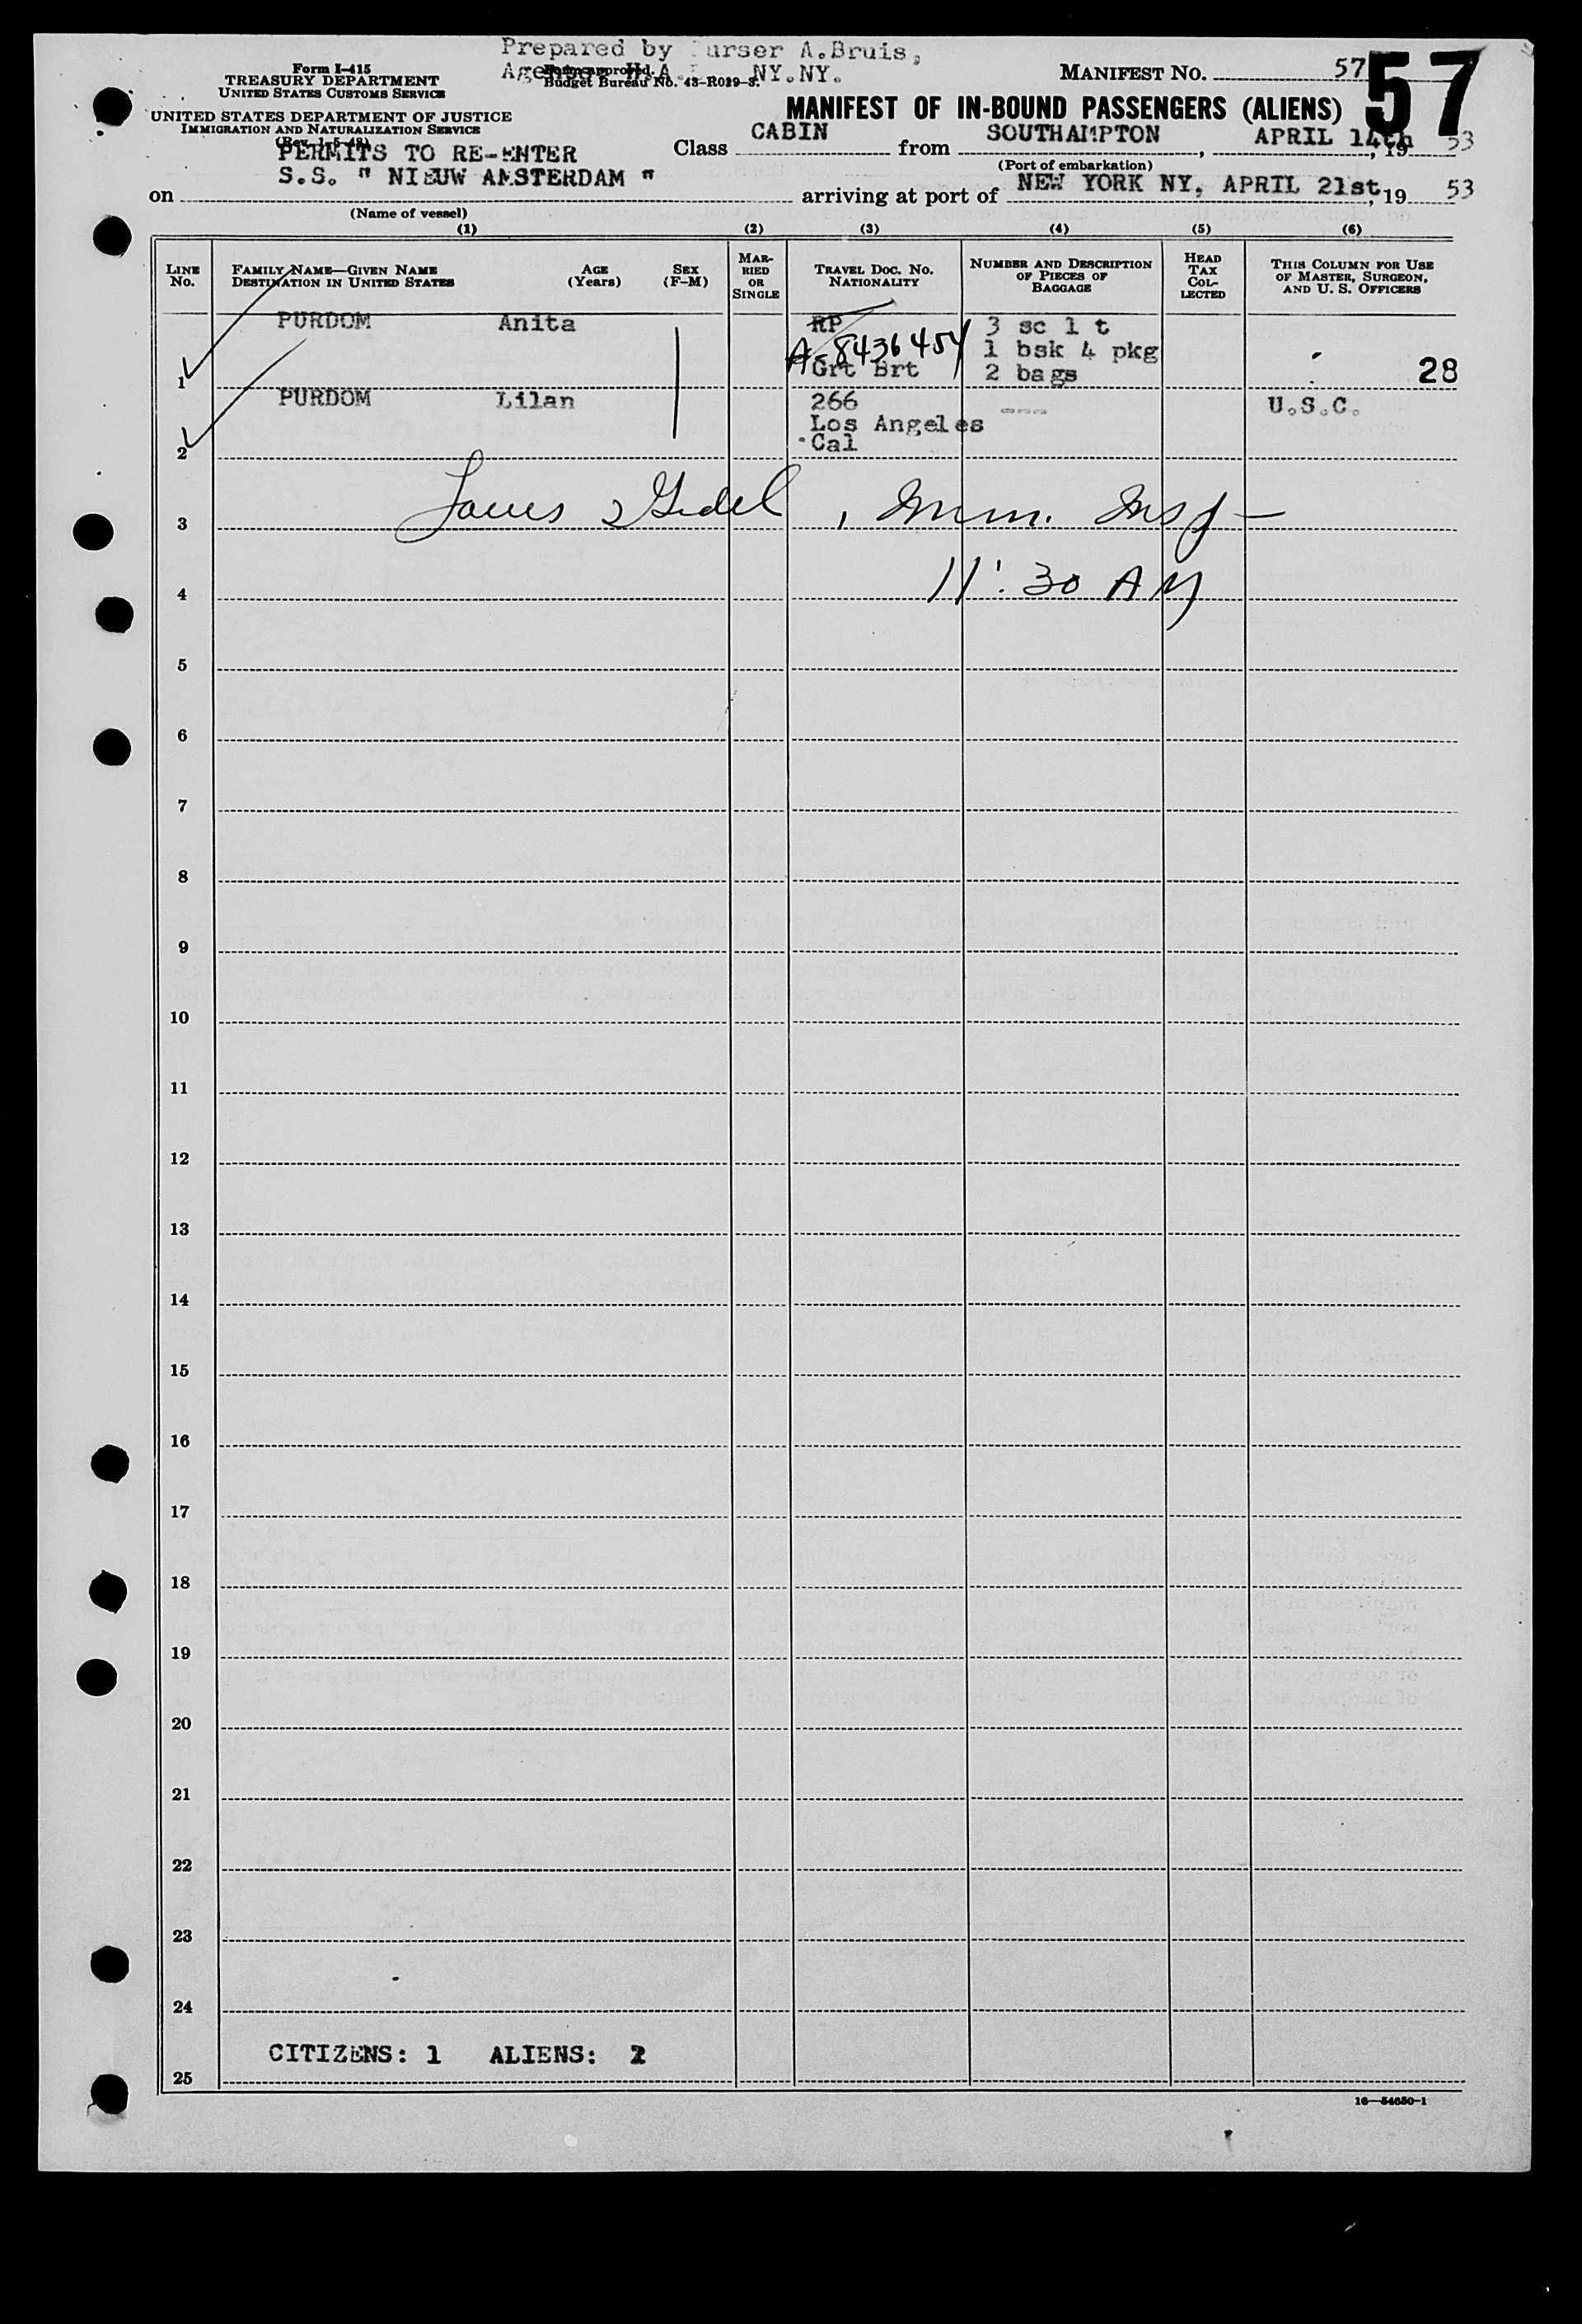 Prepared by Purser A.Bruis,
Form I-415
TREASURY DEPARTMENT
UNITED STATES CUSTOMS SERVICE
Form approved.
Budget Bureau No. 43-R019-3.
NY.NY.
MANIFEST NO. 57
57
UNITED STATES DEPARTMENT OF JUSTICE
IMMIGRATION AND NATURALIZATION SERVICE
MANIFEST OF IN-BOUND PASSENGERS (ALIENS)
PERMITS TO RE-ENTER
Class CABIN from SOUTHAMPTON, APRIL 14th, 19 53
(Port of embarkation)
on S.S. " NIEUW AMSTERDAM " arriving at port of NEW YORK NY, APRIL 21st, 19 53
(Name of vessel)
(1) (2) (3) (4) (5) (6)
LINE No.
FAMILY NAME—GIVEN NAME
DESTINATION IN UNITED STATES
AGE (Years)
SEX (F-M)
MARRIED OR SINGLE
TRAVEL DOC. NO. NATIONALITY
NUMBER AND DESCRIPTION OF PIECES OF BAGGAGE
HEAD TAX COLLECTED
THIS COLUMN FOR USE OF MASTER, SURGEON, AND U. S. OFFICERS
PURDOM Anita RP 3 sc 1 t
A-8436454 1 bsk 4 pkg
1 Grt Brt 2 bags 28
PURDOM Lilan 266 --- U.S.C.
Los Angeles
2 Cal
3 , Imm. Insp
4 11:30 AM
5
6
7
8
9
10
11
12
13
14
15
16
17
18
19
20
21
22
23
24
CITIZENS: 1 ALIENS:
25
16—54650-1